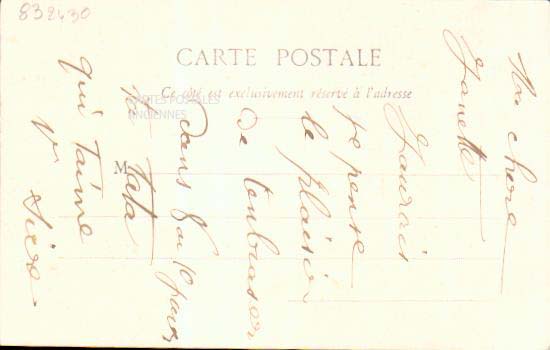 832430
CARTE POSTALE
Ce côté est exclusivement réservé à l'adresse
CARTES POSTALES
ANCIENNES
M
Ma chère
Janette
J'aurais
je pense
le plaisir
De t'embrasser
dans 8 ou 10 jours
ta Tata
qui t'aime
V